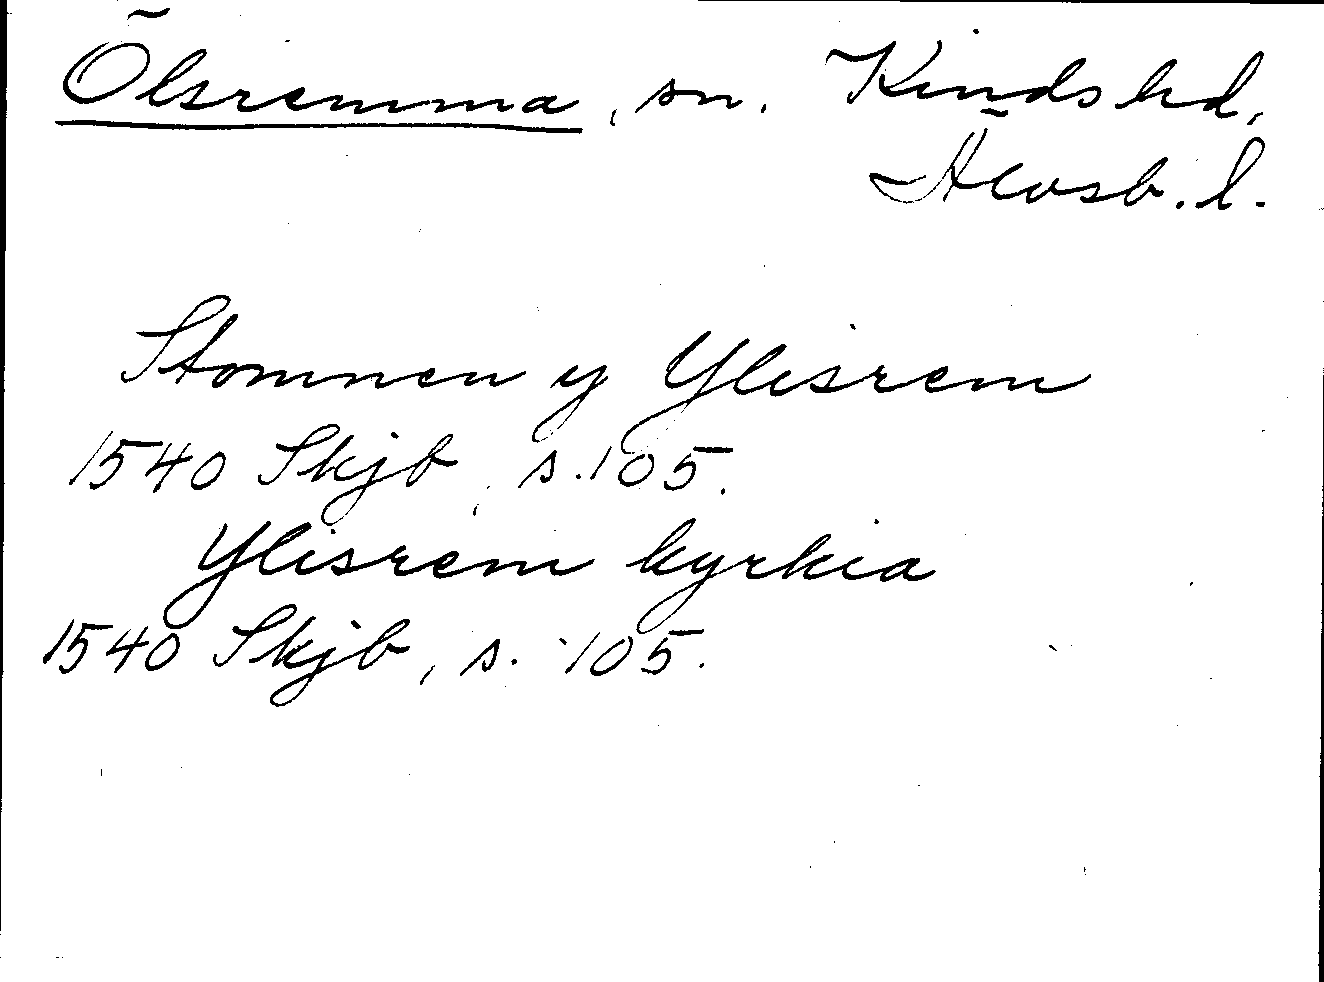 Ölsremma, sn. Kinds hd,
Älvsb. l.
Stomnen y Ylisrem
1540 Skjb, s. 105.
Ylisrem kyrkia
1540 Skjb, s. 105.